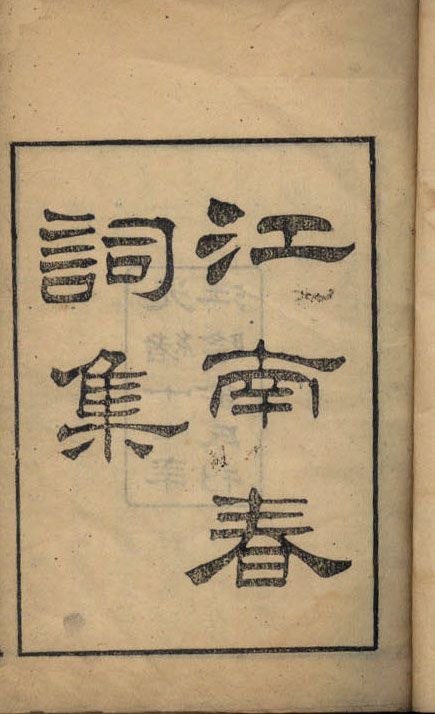 江南春
詞集